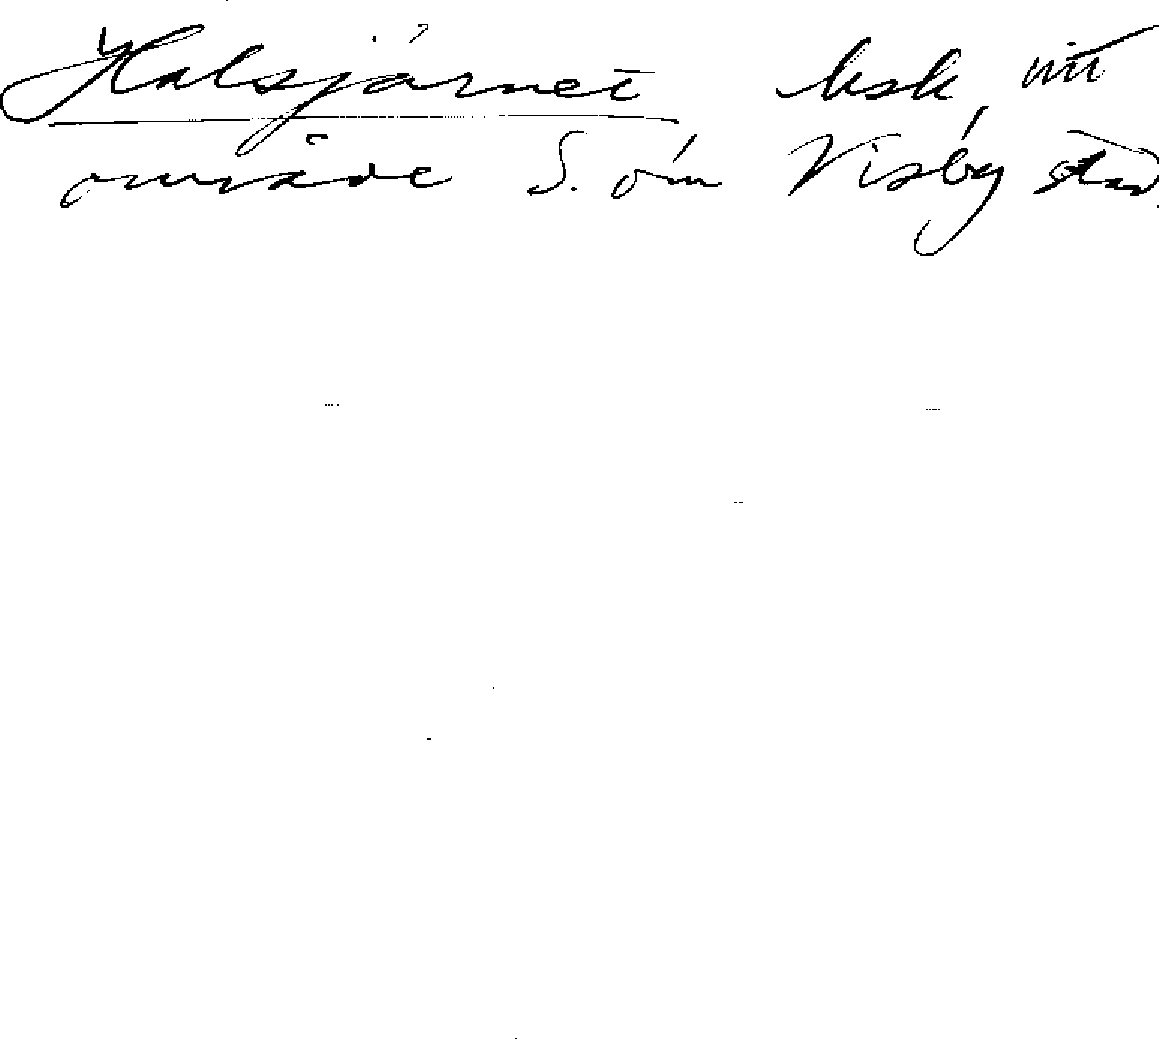 Halsjärnet bsk,
område S. om Visby stad.